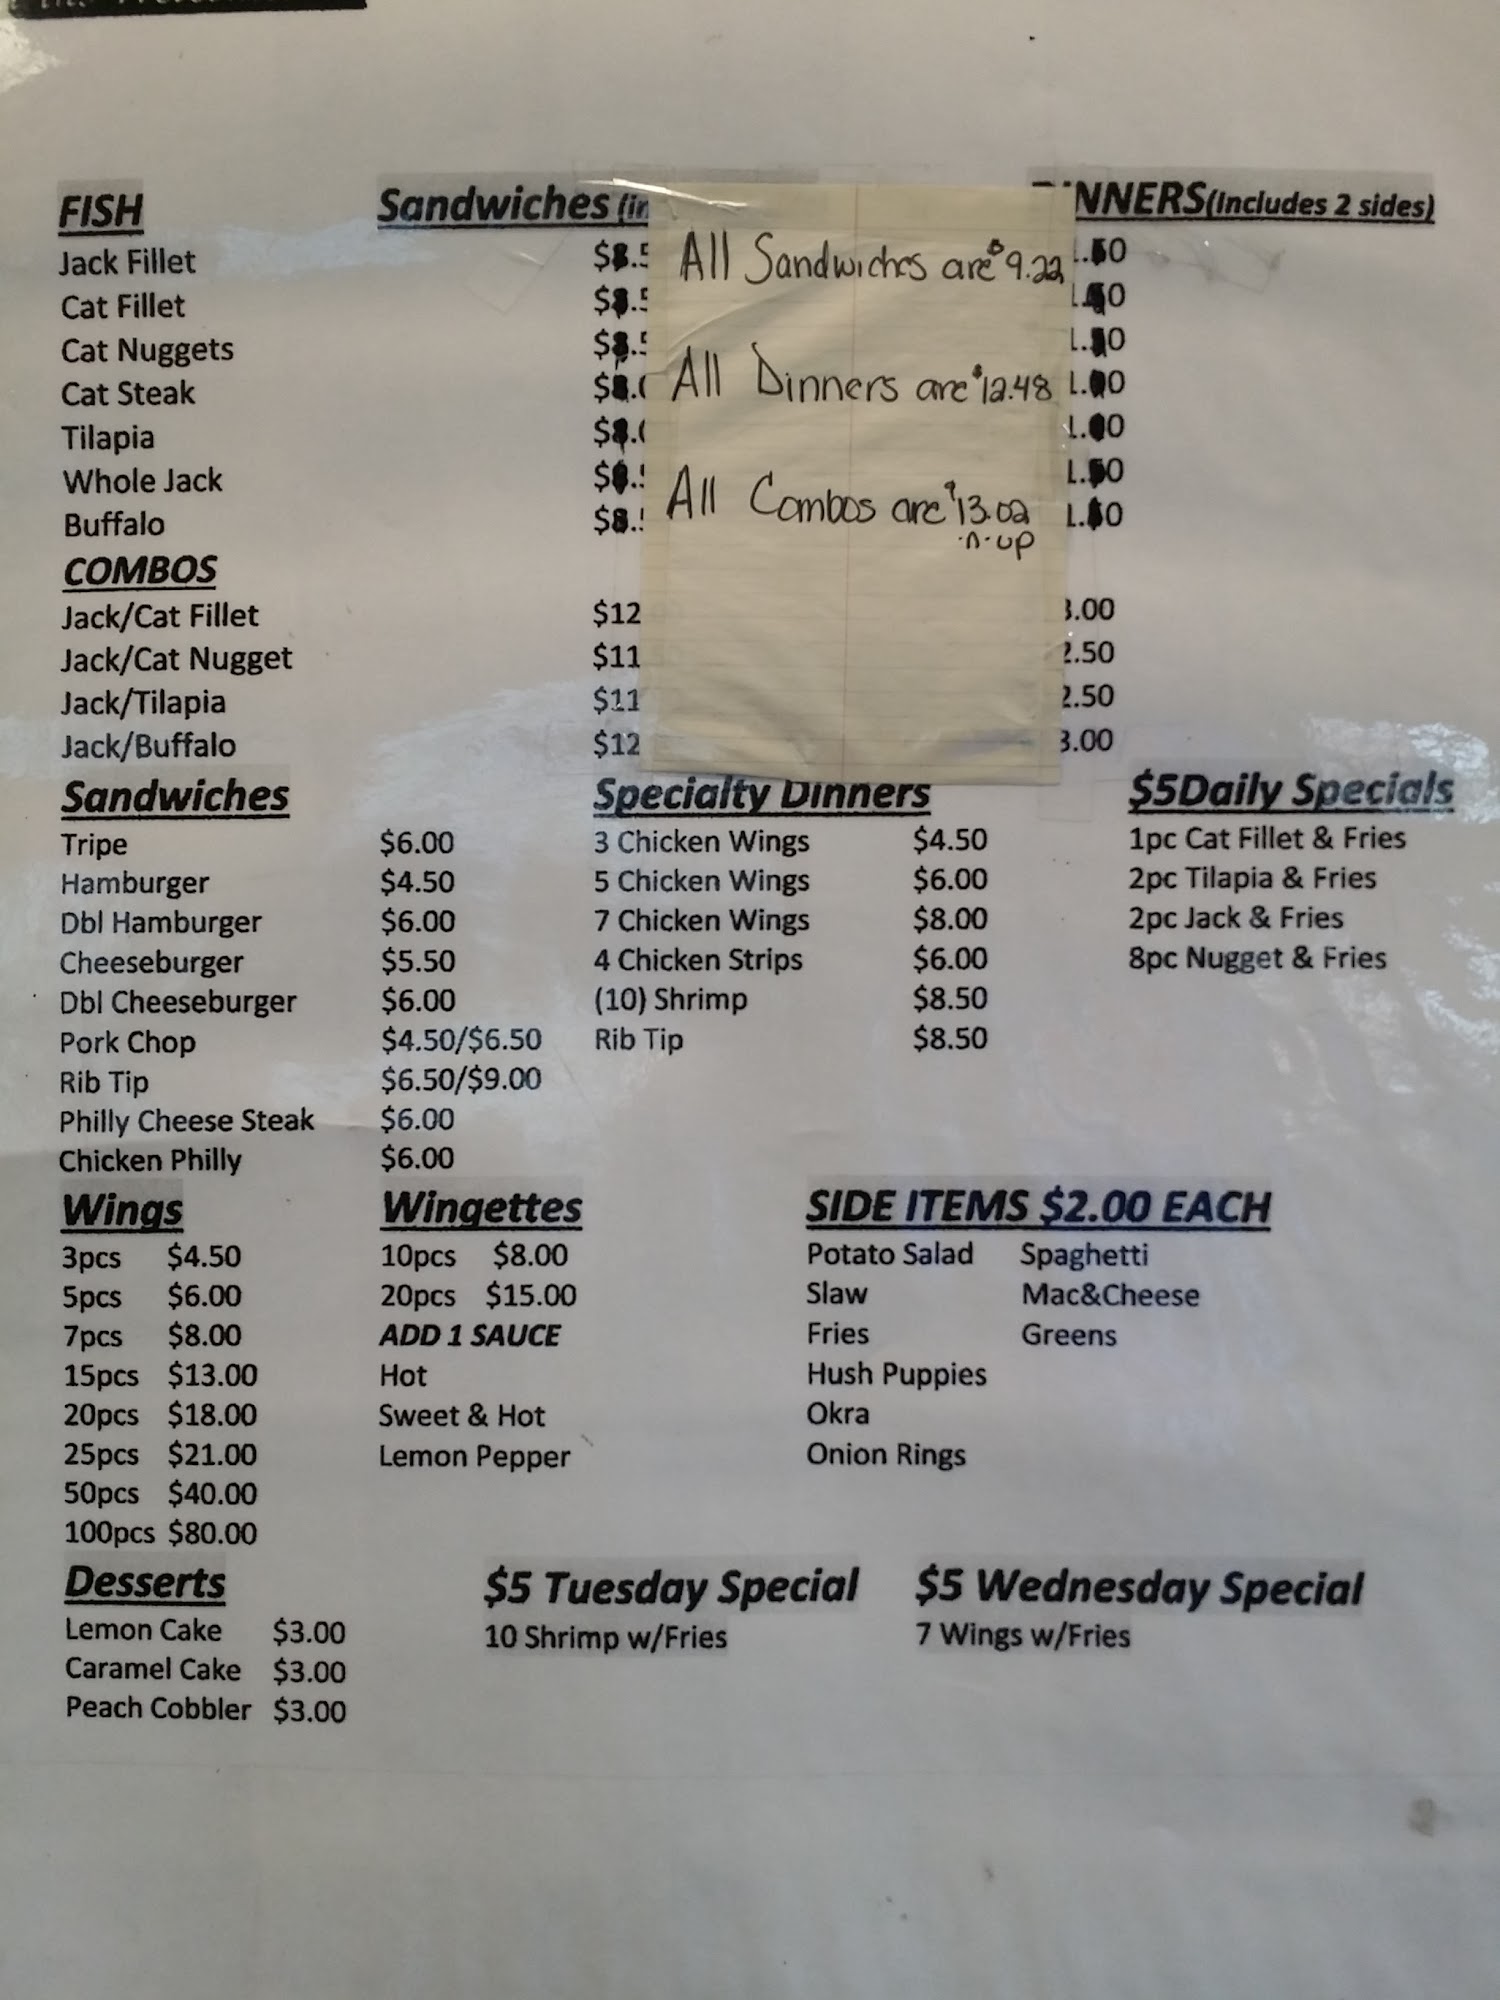 FISH
Sandwiches
NNERS(Includes 2 sides)
Jack Fillet
Cat Fillet
Cat Nuggets
Cat Steak
Tilapia
Whole Jack
Buffalo
All Sandwiches are $9.22
All Dinners are $12.48
All Combos are $13.02
·n·up
COMBOS
Jack/Cat Fillet $12 3.00
Jack/Cat Nugget $11 2.50
Jack/Tilapia $11 2.50
Jack/Buffalo $12 3.00
Sandwiches
Tripe $6.00
Hamburger $4.50
Dbl Hamburger $6.00
Cheeseburger $5.50
Dbl Cheeseburger $6.00
Pork Chop $4.50/$6.50
Rib Tip $6.50/$9.00
Philly Cheese Steak $6.00
Chicken Philly $6.00
Specialty Dinners
3 Chicken Wings $4.50
5 Chicken Wings $6.00
7 Chicken Wings $8.00
4 Chicken Strips $6.00
(10) Shrimp $8.50
Rib Tip $8.50
$5Daily Specials
1pc Cat Fillet & Fries
2pc Tilapia & Fries
2pc Jack & Fries
8pc Nugget & Fries
Wings
3pcs $4.50
5pcs $6.00
7pcs $8.00
15pcs $13.00
20pcs $18.00
25pcs $21.00
50pcs $40.00
100pcs $80.00
Wingettes
10pcs $8.00
20pcs $15.00
ADD 1 SAUCE
Hot
Sweet & Hot
Lemon Pepper
SIDE ITEMS $2.00 EACH
Potato Salad Spaghetti
Slaw Mac&Cheese
Fries Greens
Hush Puppies
Okra
Onion Rings
Desserts
Lemon Cake $3.00
Caramel Cake $3.00
Peach Cobbler $3.00
$5 Tuesday Special
10 Shrimp w/Fries
$5 Wednesday Special
7 Wings w/Fries